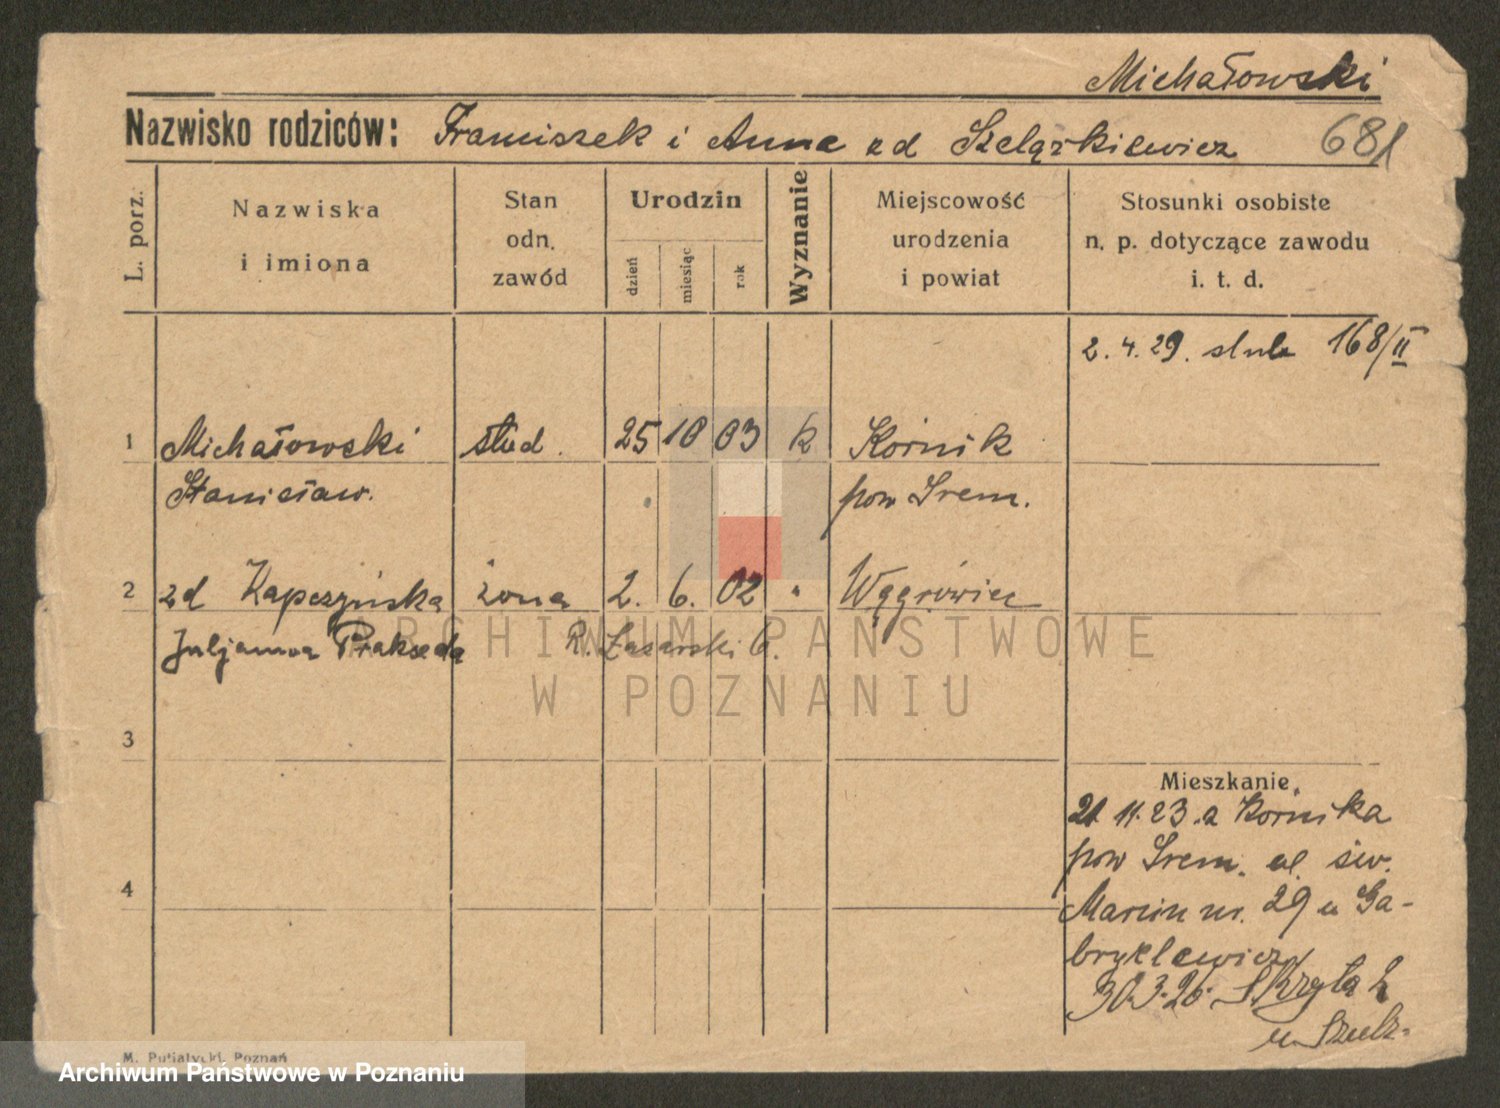 Michałowski
Nazwisko rodziców: Franciszek i Anna zd Szelążkiewicz 681
L. porz.
Nazwiska
i imiona
Stan
odn.
zawód
Urodzin
dzień
miesiąc
rok
Wyznanie
Miejscowość
urodzenia
i powiat
Stosunki osobiste
n. p. dotyczące zawodu
i. t. d.
2. 4. 29. 168/II
1 Michałowski stud. 25 10 03 k Kórnik
Stanisław. pow Śrem.
2 zd Kapczyńska żona 2. 6. 02 " Wągrówiec
Juljanna Prakseda R. Łazarski 6.
ARCHIWUM PAŃSTWOWE
W POZNANIU
3
Mieszkanie
21 11. 23. z Kórnika
pow Śrem. ul. św.
4
Marcin nr. 29 u Ga-
bryelewicz
30.3.26.
M. Putiatycki, Poznań
Archiwum Państwowe w Poznaniu